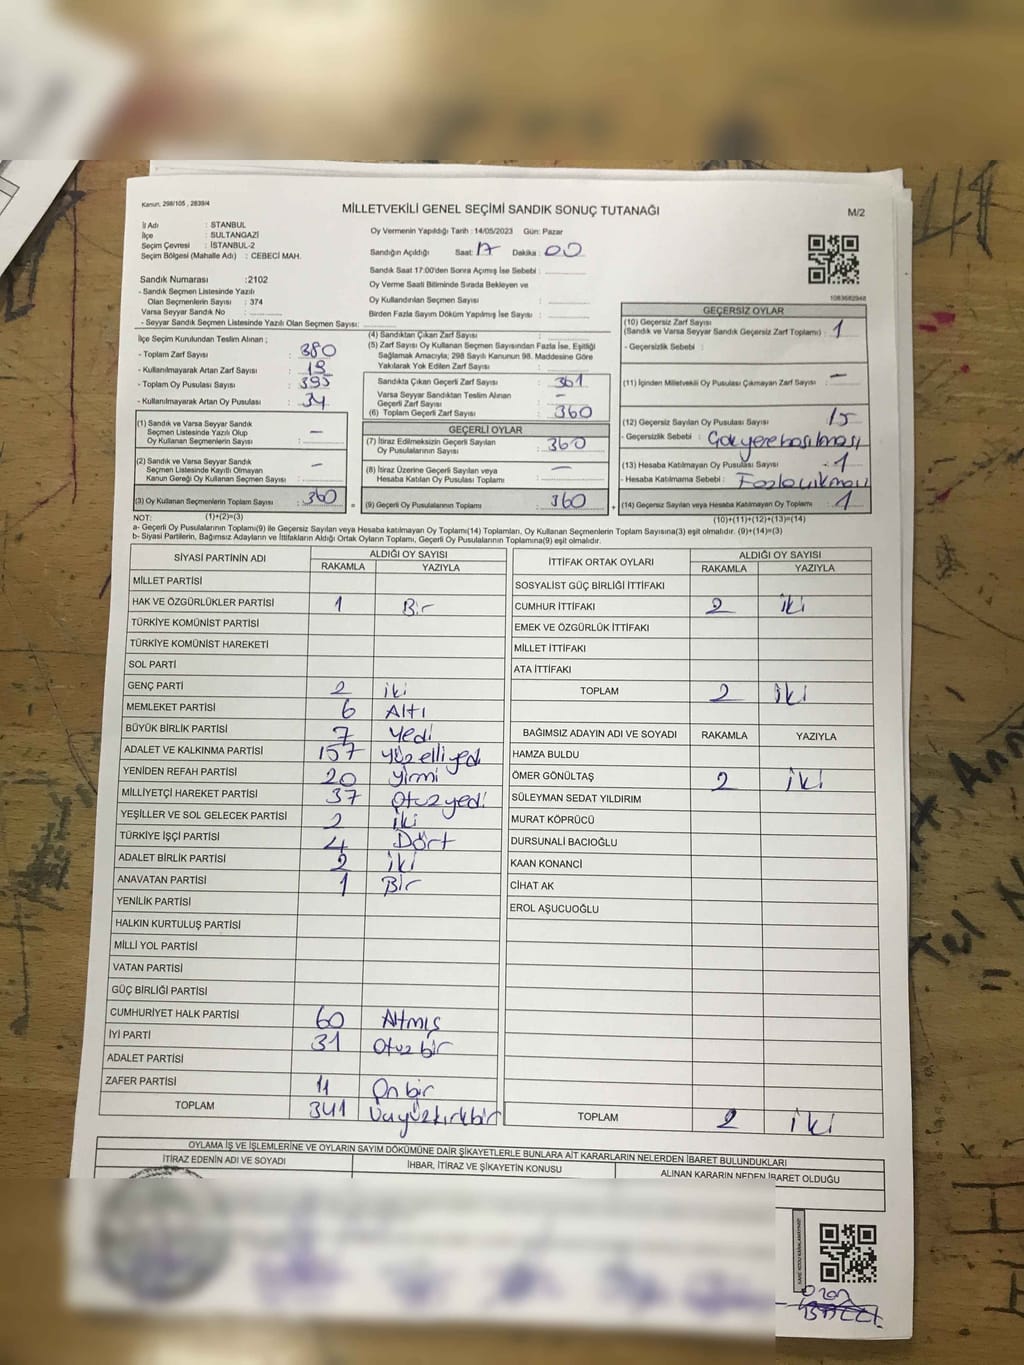 Kanun, 298/105 , 2839/4
MİLLETVEKİLİ GENEL SEÇİMİ SANDIK SONUÇ TUTANAĞI
M/2
İl Adı : STANBUL
İlçe : SULTANGAZİ
Seçim Çevresi : İSTANBUL-2
Seçim Bölgesi (Mahalle Adı) : CEBECİ MAH.
Sandık Numarası :2102
- Sandık Seçmen Listesinde Yazılı
Olan Seçmenlerin Sayısı : 374
Varsa Seyyar Sandık No :
- Seyyar Sandık Seçmen Listesinde Yazılı Olan Seçmen Sayısı:
Oy Vermenin Yapıldığı Tarih : 14/05/2023 Gün: Pazar
Sandığın Açıldığı Saat: 17 Dakika : 00
Sandık Saat 17:00'den Sonra Açımış İse Sebebi :
Oy Verme Saati Bitiminde Sırada Bekleyen ve
Oy Kullandırılan Seçmen Sayısı :
Birden Fazla Sayım Döküm Yapılmış İse Sayısı :
1083682948
İlçe Seçim Kurulundan Teslim Alınan ;
- Toplam Zarf Sayısı : 380
- Kullanılmayarak Artan Zarf Sayısı : 19
- Toplam Oy Pusulası Sayısı : 395
- Kullanılmayarak Artan Oy Pusulası : 34
(1) Sandık ve Varsa Seyyar Sandık
Seçmen Listesinde Yazılı Olup
Oy Kullanan Seçmenlerin Sayısı : –
(2) Sandık ve Varsa Seyyar Sandık
Seçmen Listesinde Kayıtlı Olmayan
Kanun Gereği Oy Kullanan Seçmen Sayısı : –
(3) Oy Kullanan Seçmenlerin Toplam Sayısı : 360
(1)+(2)=(3)
(4) Sandıktan Çıkan Zarf Sayısı :
(5) Zarf Sayısı Oy Kullanan Seçmen Sayısından Fazla İse, Eşitliği
Sağlamak Amacıyla; 298 Sayılı Kanunun 98. Maddesine Göre
Yakılarak Yok Edilen Zarf Sayısı :
Sandıkta Çıkan Geçerli Zarf Sayısı : 361
Varsa Seyyar Sandıktan Teslim Alınan
Geçerli Zarf Sayısı : –
(6) Toplam Geçerli Zarf Sayısı : 360
GEÇERLİ OYLAR
(7) İtiraz Edilmeksizin Geçerli Sayılan
Oy Pusulalarının Sayısı : 360
(8) İtiraz Üzerine Geçerli Sayılan veya
Hesaba Katılan Oy Pusulası Toplamı : –
= (9) Geçerli Oy Pusulalarının Toplamı : 360 +
GEÇERSİZ OYLAR
(10) Geçersiz Zarf Sayısı
(Sandık ve Varsa Seyyar Sandık Geçersiz Zarf Toplamı) : 1
- Geçersizlik Sebebi :
(11) İçinden Milletvekili Oy Pusulası Çıkmayan Zarf Sayısı : –
(12) Geçersiz Sayılan Oy Pusulası Sayısı : 15
- Geçersizlik Sebebi : Çok yere basılması
(13) Hesaba Katılmayan Oy Pusulası Sayısı : 1
- Hesaba Katılmama Sebebi : Fazla çıkması
(14) Geçersiz Sayılan veya Hesaba Katılmayan Oy Toplamı : 1
(10)+(11)+(12)+(13)=(14)
NOT:
a- Geçerli Oy Pusulalarının Toplamı(9) ile Geçersiz Sayılan veya Hesaba katılmayan Oy Toplamı(14) Toplamları, Oy Kullanan Seçmenlerin Toplam Sayısına(3) eşit olmalıdır. (9)+(14)=(3)
b- Siyasi Partilerin, Bağımsız Adayların ve İttifakların Aldığı Ortak Oyların Toplamı, Geçerli Oy Pusulalarının Toplamına(9) eşit olmalıdır.
SİYASİ PARTİNİN ADI ALDIĞI OY SAYISI
RAKAMLA YAZIYLA
MİLLET PARTİSİ
HAK VE ÖZGÜRLÜKLER PARTİSİ 1 Bir
TÜRKİYE KOMÜNİST PARTİSİ
TÜRKİYE KOMÜNİST HAREKETİ
SOL PARTİ
GENÇ PARTİ 2 iki
MEMLEKET PARTİSİ 6 Altı
BÜYÜK BİRLİK PARTİSİ 7 Yedi
ADALET VE KALKINMA PARTİSİ 157 yüz elli yedi
YENİDEN REFAH PARTİSİ 20 yirmi
MİLLİYETÇİ HAREKET PARTİSİ 37 Otuz yedi
YEŞİLLER VE SOL GELECEK PARTİSİ 2 iki
TÜRKİYE İŞÇİ PARTİSİ 4 Dört
ADALET BİRLİK PARTİSİ 2 iki
ANAVATAN PARTİSİ 1 Bir
YENİLİK PARTİSİ
HALKIN KURTULUŞ PARTİSİ
MİLLİ YOL PARTİSİ
VATAN PARTİSİ
GÜÇ BİRLİĞİ PARTİSİ
CUMHURİYET HALK PARTİSİ 60 Altmış
İYİ PARTİ 31 Otuz bir
ADALET PARTİSİ
ZAFER PARTİSİ 11 On bir
TOPLAM 341 Üçyüzkırkbir
İTTİFAK ORTAK OYLARI ALDIĞI OY SAYISI
RAKAMLA YAZIYLA
SOSYALİST GÜÇ BİRLİĞİ İTTİFAKI
CUMHUR İTTİFAKI 2 iki
EMEK VE ÖZGÜRLÜK İTTİFAKI
MİLLET İTTİFAKI
ATA İTTİFAKI
TOPLAM 2 iki
BAĞIMSIZ ADAYIN ADI VE SOYADI RAKAMLA YAZIYLA
HAMZA BULDU
ÖMER GÖNÜLTAŞ 2 iki
SÜLEYMAN SEDAT YILDIRIM
MURAT KÖPRÜCÜ
DURSUNALİ BACIOĞLU
KAAN KONANCİ
CİHAT AK
EROL AŞUCUOĞLU
TOPLAM 2 iki
OYLAMA İŞ VE İŞLEMLERİNE VE OYLARIN SAYIM DÖKÜMÜNE DAİR ŞİKAYETLERLE BUNLARA AİT KARARLARIN NELERDEN İBARET BULUNDUKLARI
İTİRAZ EDENİN ADI VE SOYADI
İHBAR, İTİRAZ VE ŞİKAYETİN KONUSU
ALINAN KARARIN NEDEN İBARET OLDUĞU